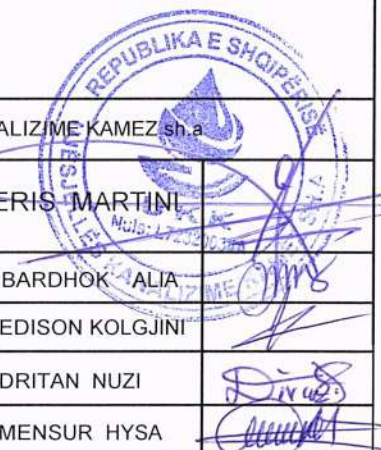 REPUBLIKA E SHQIPËRISË
ALIZIME KAMEZ sh.a
ERIS MARTINI
BARDHOK ALIA
EDISON KOLGJINI
DRITAN NUZI
MENSUR HYSA